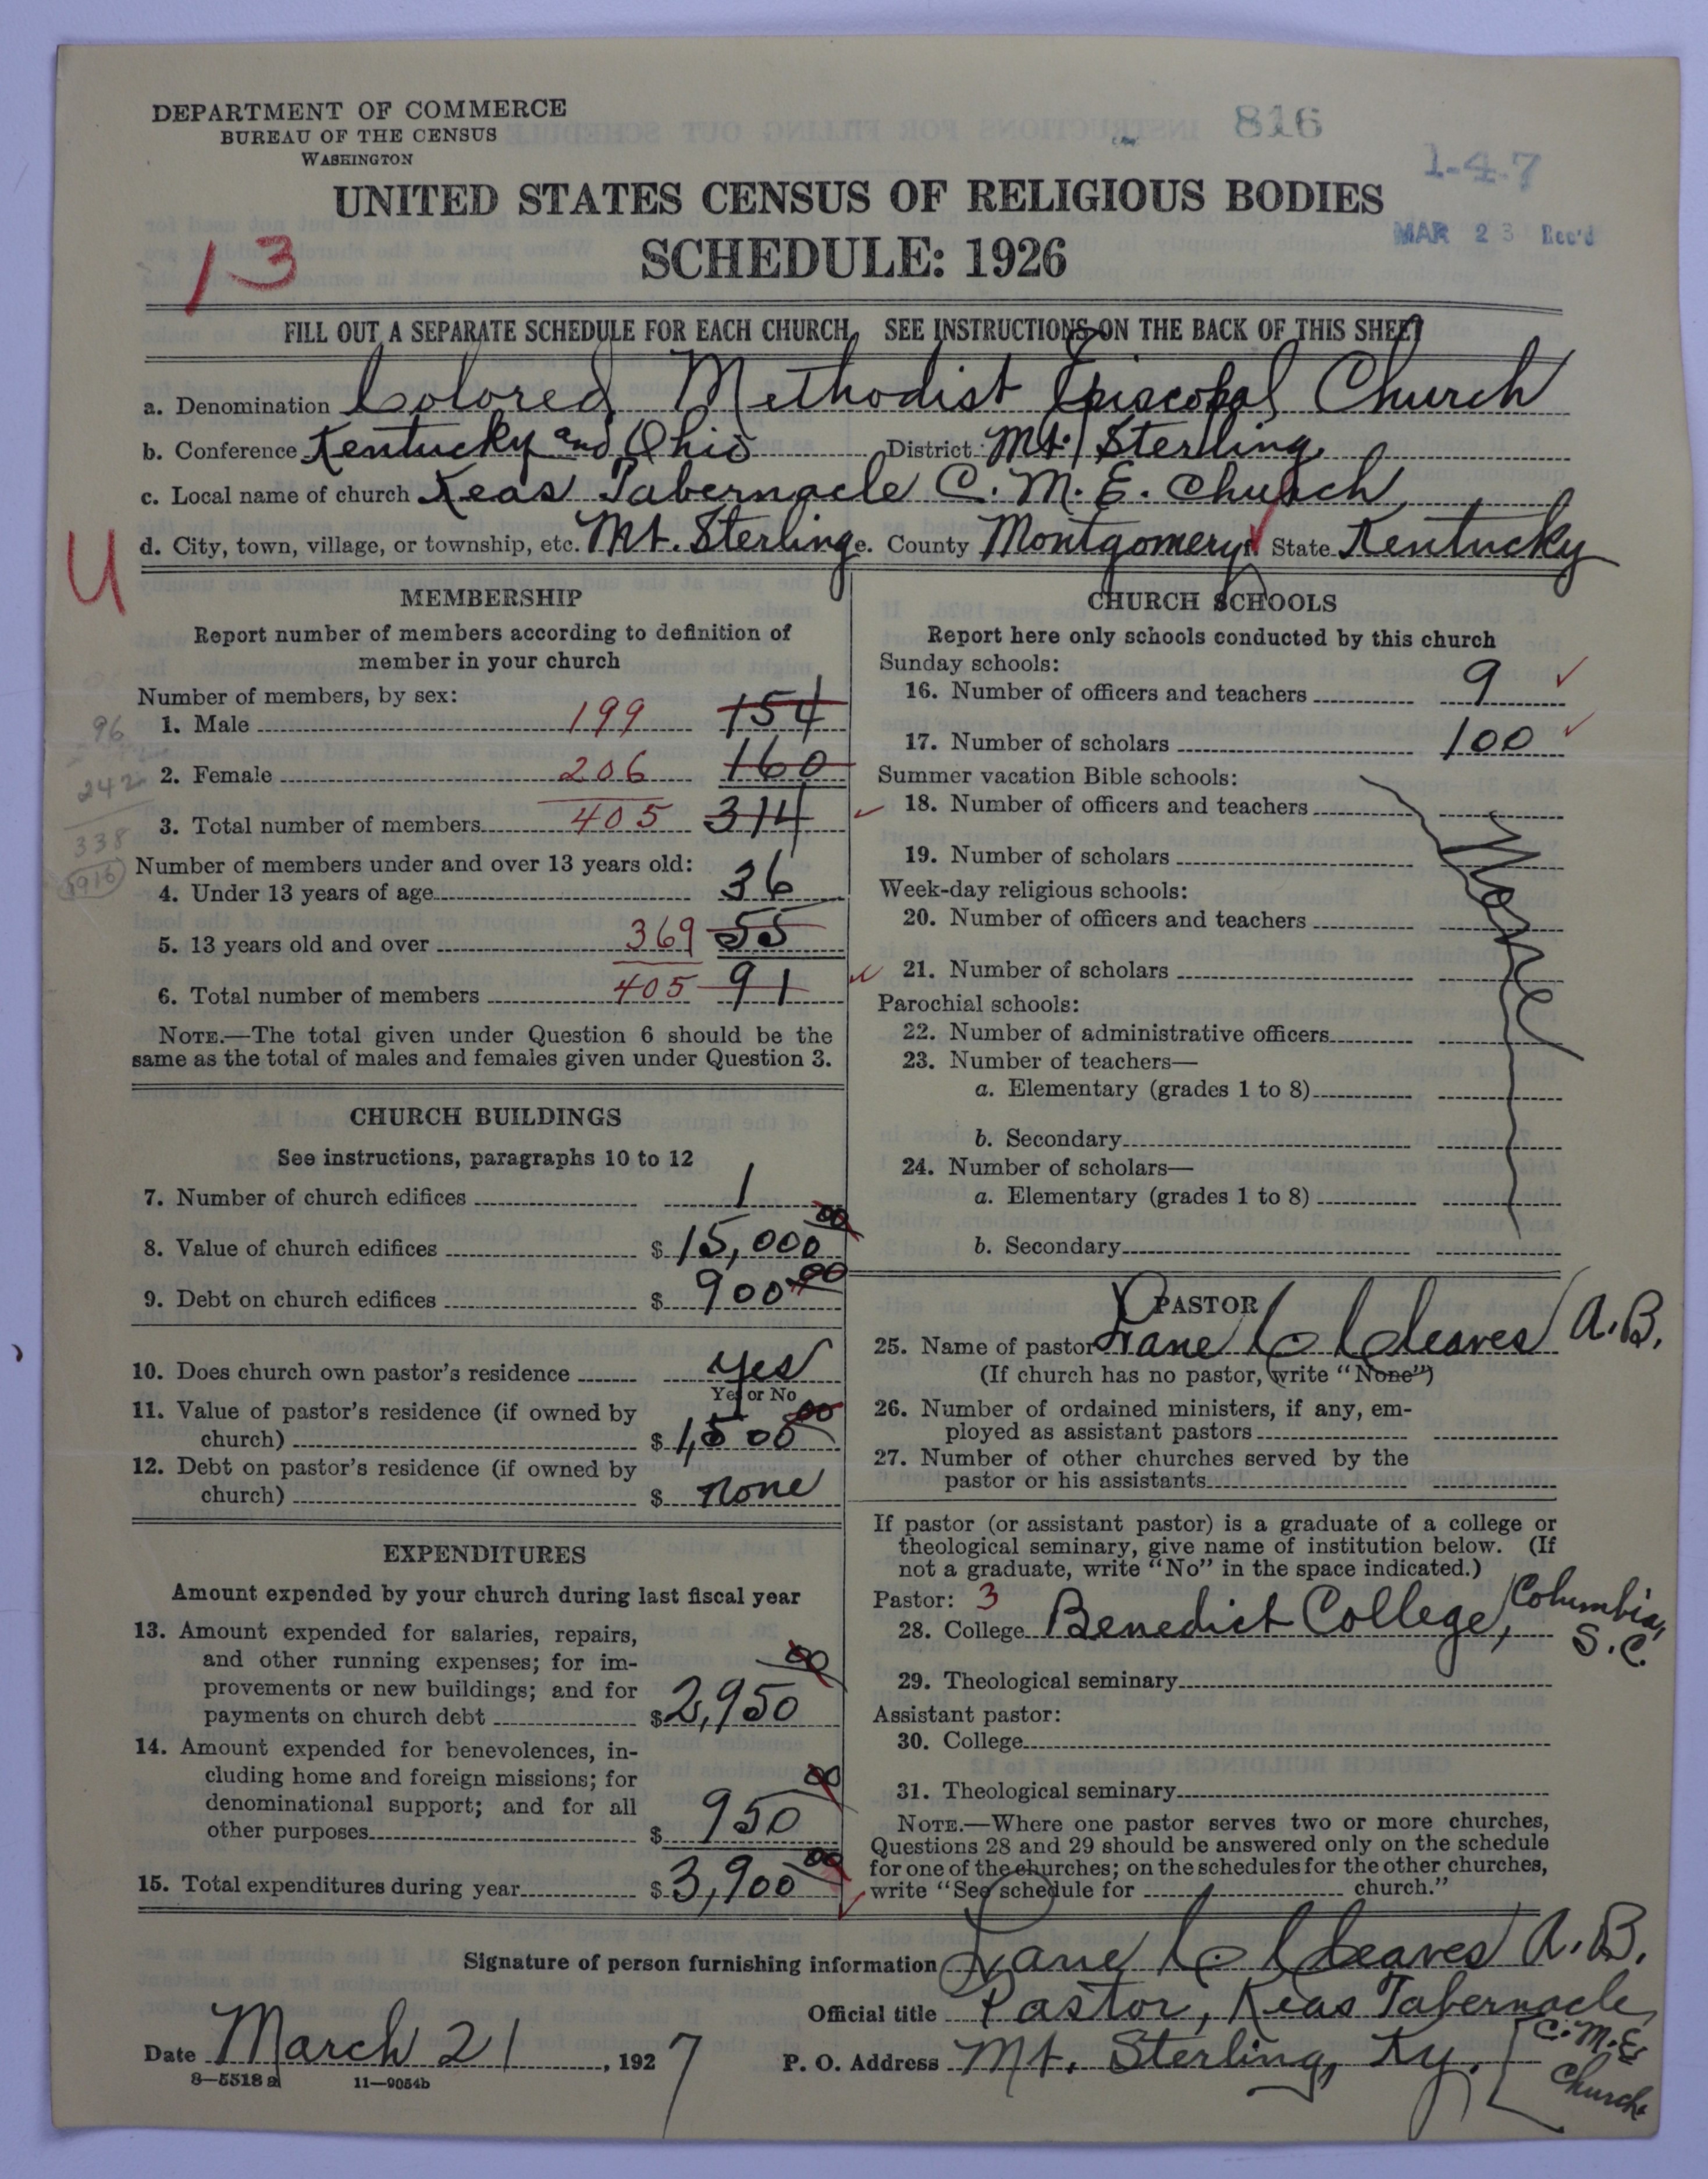 DEPARTMENT OF COMMERCE
BUREAU OF THE CENSUS
WASHINGTON
816
1-47
UNITED STATES CENSUS OF RELIGIOUS BODIES
MAR 23 Rec'd
SCHEDULE: 1926
13
FILL OUT A SEPARATE SCHEDULE FOR EACH CHURCH. SEE INSTRUCTIONS ON THE BACK OF THIS SHEET
a. Denomination Colored Methodist Episcopal Church
b. Conference Kentucky and Ohio District Mt. Sterling
c. Local name of church Keas Tabernacle C. M. E. Church
d. City, town, village, or township, etc. Mt. Sterling e. County Montgomery f. State Kentucky
U
MEMBERSHIP
Report number of members according to definition of
member in your church
Number of members, by sex:
1. Male 199 154
2. Female 206 160
3. Total number of members 405 314
Number of members under and over 13 years old:
4. Under 13 years of age 36
5. 13 years old and over 369 55
6. Total number of members 405 91
96
242
338
NOTE.—The total given under Question 6 should be the
same as the total of males and females given under Question 3.
CHURCH BUILDINGS
See instructions, paragraphs 10 to 12
7. Number of church edifices 1
8. Value of church edifices $ 15,000 00
9. Debt on church edifices $ 900 00
10. Does church own pastor's residence yes
Yes or No
11. Value of pastor's residence (if owned by
church) $ 1,500 00
12. Debt on pastor's residence (if owned by
church) $ none
EXPENDITURES
Amount expended by your church during last fiscal year
13. Amount expended for salaries, repairs,
and other running expenses; for im-
provements or new buildings; and for
payments on church debt $ 2,950 00
14. Amount expended for benevolences, in-
cluding home and foreign missions; for
denominational support; and for all
other purposes $ 950 00
15. Total expenditures during year $ 3,900 00
CHURCH SCHOOLS
Report here only schools conducted by this church
Sunday schools:
16. Number of officers and teachers 9
17. Number of scholars 100
Summer vacation Bible schools:
18. Number of officers and teachers
19. Number of scholars
Week-day religious schools:
20. Number of officers and teachers
None
21. Number of scholars
Parochial schools:
22. Number of administrative officers
23. Number of teachers—
a. Elementary (grades 1 to 8)
b. Secondary
24. Number of scholars—
a. Elementary (grades 1 to 8)
b. Secondary
PASTOR
25. Name of pastor Lane C. Cleaves A.B.
(If church has no pastor, write "None")
26. Number of ordained ministers, if any, em-
ployed as assistant pastors
27. Number of other churches served by the
pastor or his assistants
If pastor (or assistant pastor) is a graduate of a college or
theological seminary, give name of institution below. (If
not a graduate, write "No" in the space indicated.)
Pastor: 3
28. College Benedict College, Columbia, S.C.
29. Theological seminary
Assistant pastor:
30. College
31. Theological seminary
NOTE.—Where one pastor serves two or more churches,
Questions 28 and 29 should be answered only on the schedule
for one of the churches; on the schedules for the other churches,
write "See schedule for church."
Signature of person furnishing information Lane C. Cleaves A.B.
Official title Pastor, Keas Tabernacle C.M.E. Church
Date March 21, 1927 P. O. Address Mt. Sterling, Ky.
8—5518a 11—9054b